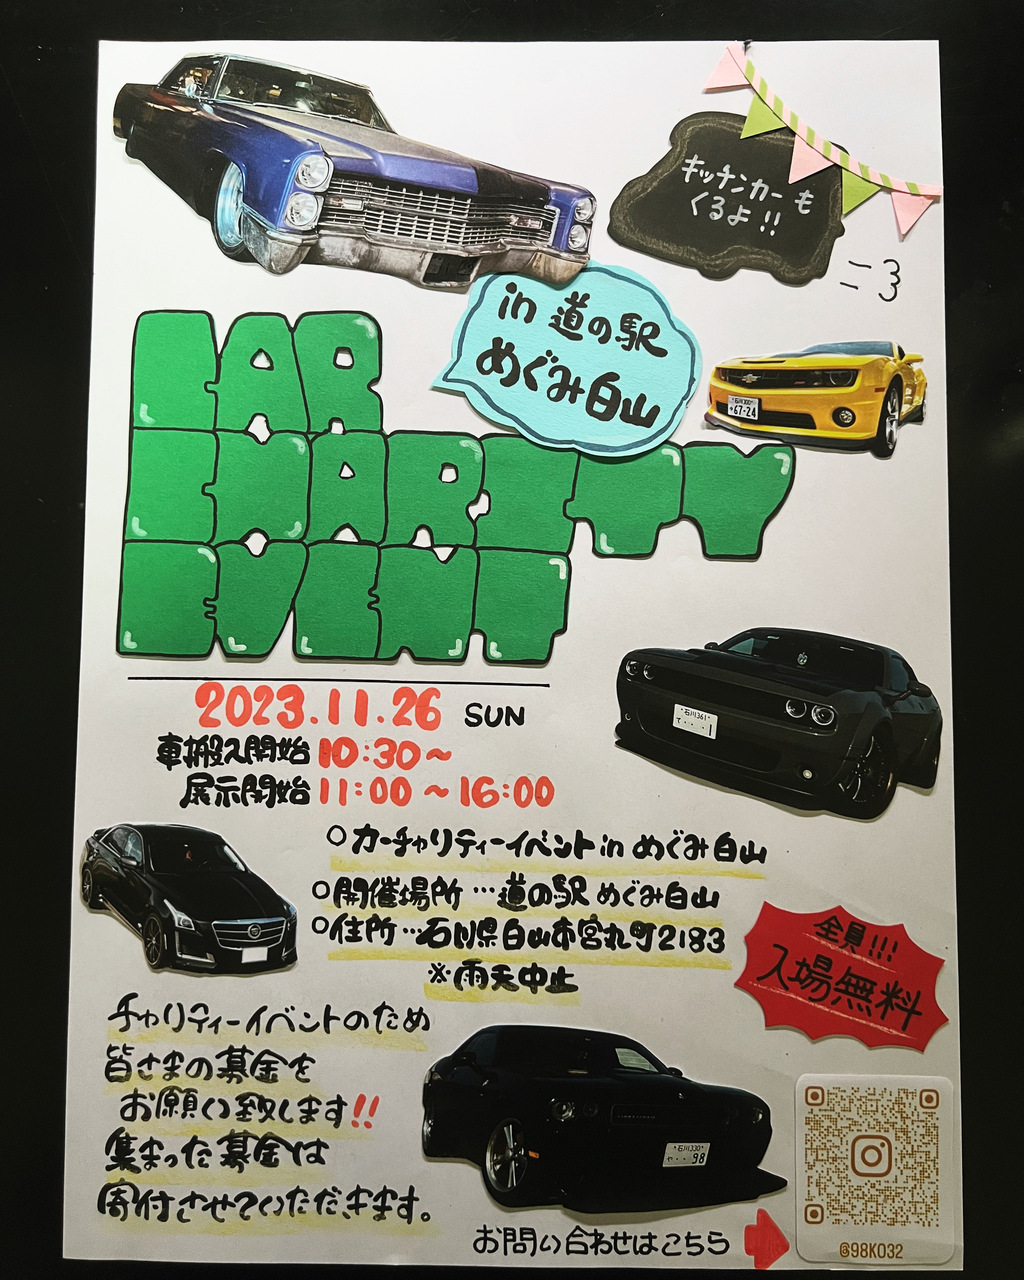 キッチンカーも
くるよ!!
in 道の駅
めぐみ白山
CAR
CHARITY
EVENT
石川300
67-24
2023.11.26 SUN
車搬入開始 10:30~
展示開始 11:00~16:00
石川361
て・・・1
○カーチャリティーイベント in めぐみ白山
○開催場所…道の駅 めぐみ白山
○住所…石川県白山市宮丸町2183
※雨天中止
全員!!!
入場無料
チャリティーイベントのため
皆さまの募金を
お願い致します!!
集まった募金は
寄付させていただきます。
石川330
や・・98
お問い合わせはこちら
@98KO32